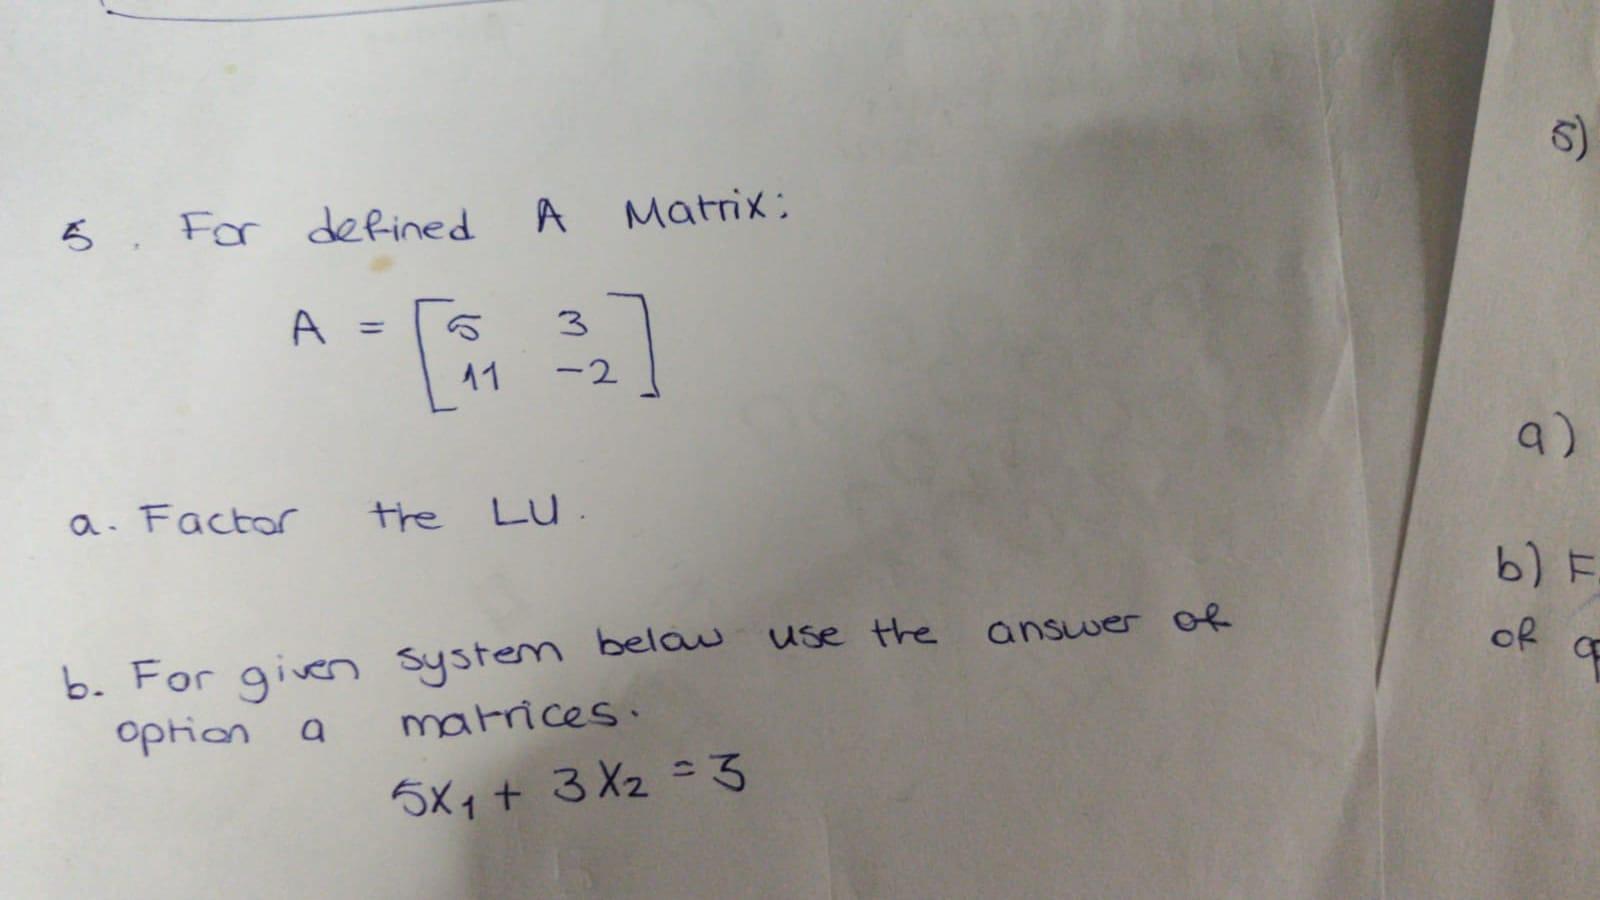 5. For defined A Matrix:
A = [ 5 3
11 -2 ]
a. Factor the LU.
b. For given system below use the answer of
option a matrices.
5x₁ + 3x₂ = 3
5)
a)
b) F
of